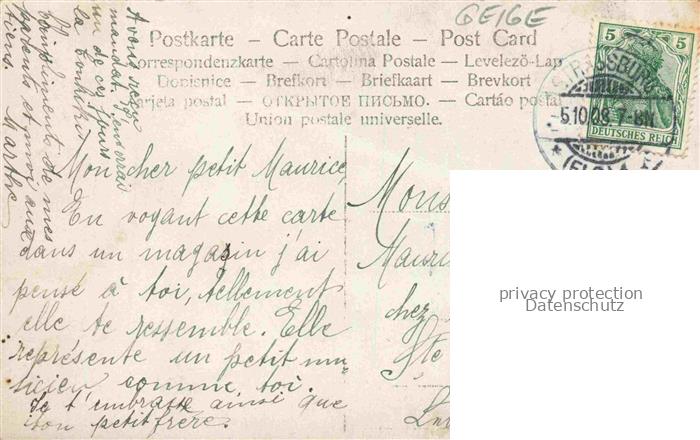 GEIGE
Postkarte - Carte Postale - Post Card
Correspondenzkarte - Cartolina Postale - Levelező-Lap
Dopisnice - Brefkort - Briefkaart - Brevkort
Karjeta postal - ОТКРЫТОЕ ПИСЬМО. - Cartão postal
Union postale universelle.
5 5
STRASSBURG
5.10.08. 7-8N
DEUTSCHES REICH
* (ELS) 1
Mon cher petit Maurice,
En voyant cette carte
dans un magasin j'ai
pensé à toi, tellement
elle te ressemble. Elle
représente un petit mu-
sicien comme toi.
Je t'embrasse ainsi que
ton petit frère.
Mons
Mauri
chez
Ste
A vous
mandat
un de ces jours
la
Compliments de mes
parents et moi aux
tiens.
Marthe
privacy protection
Datenschutz